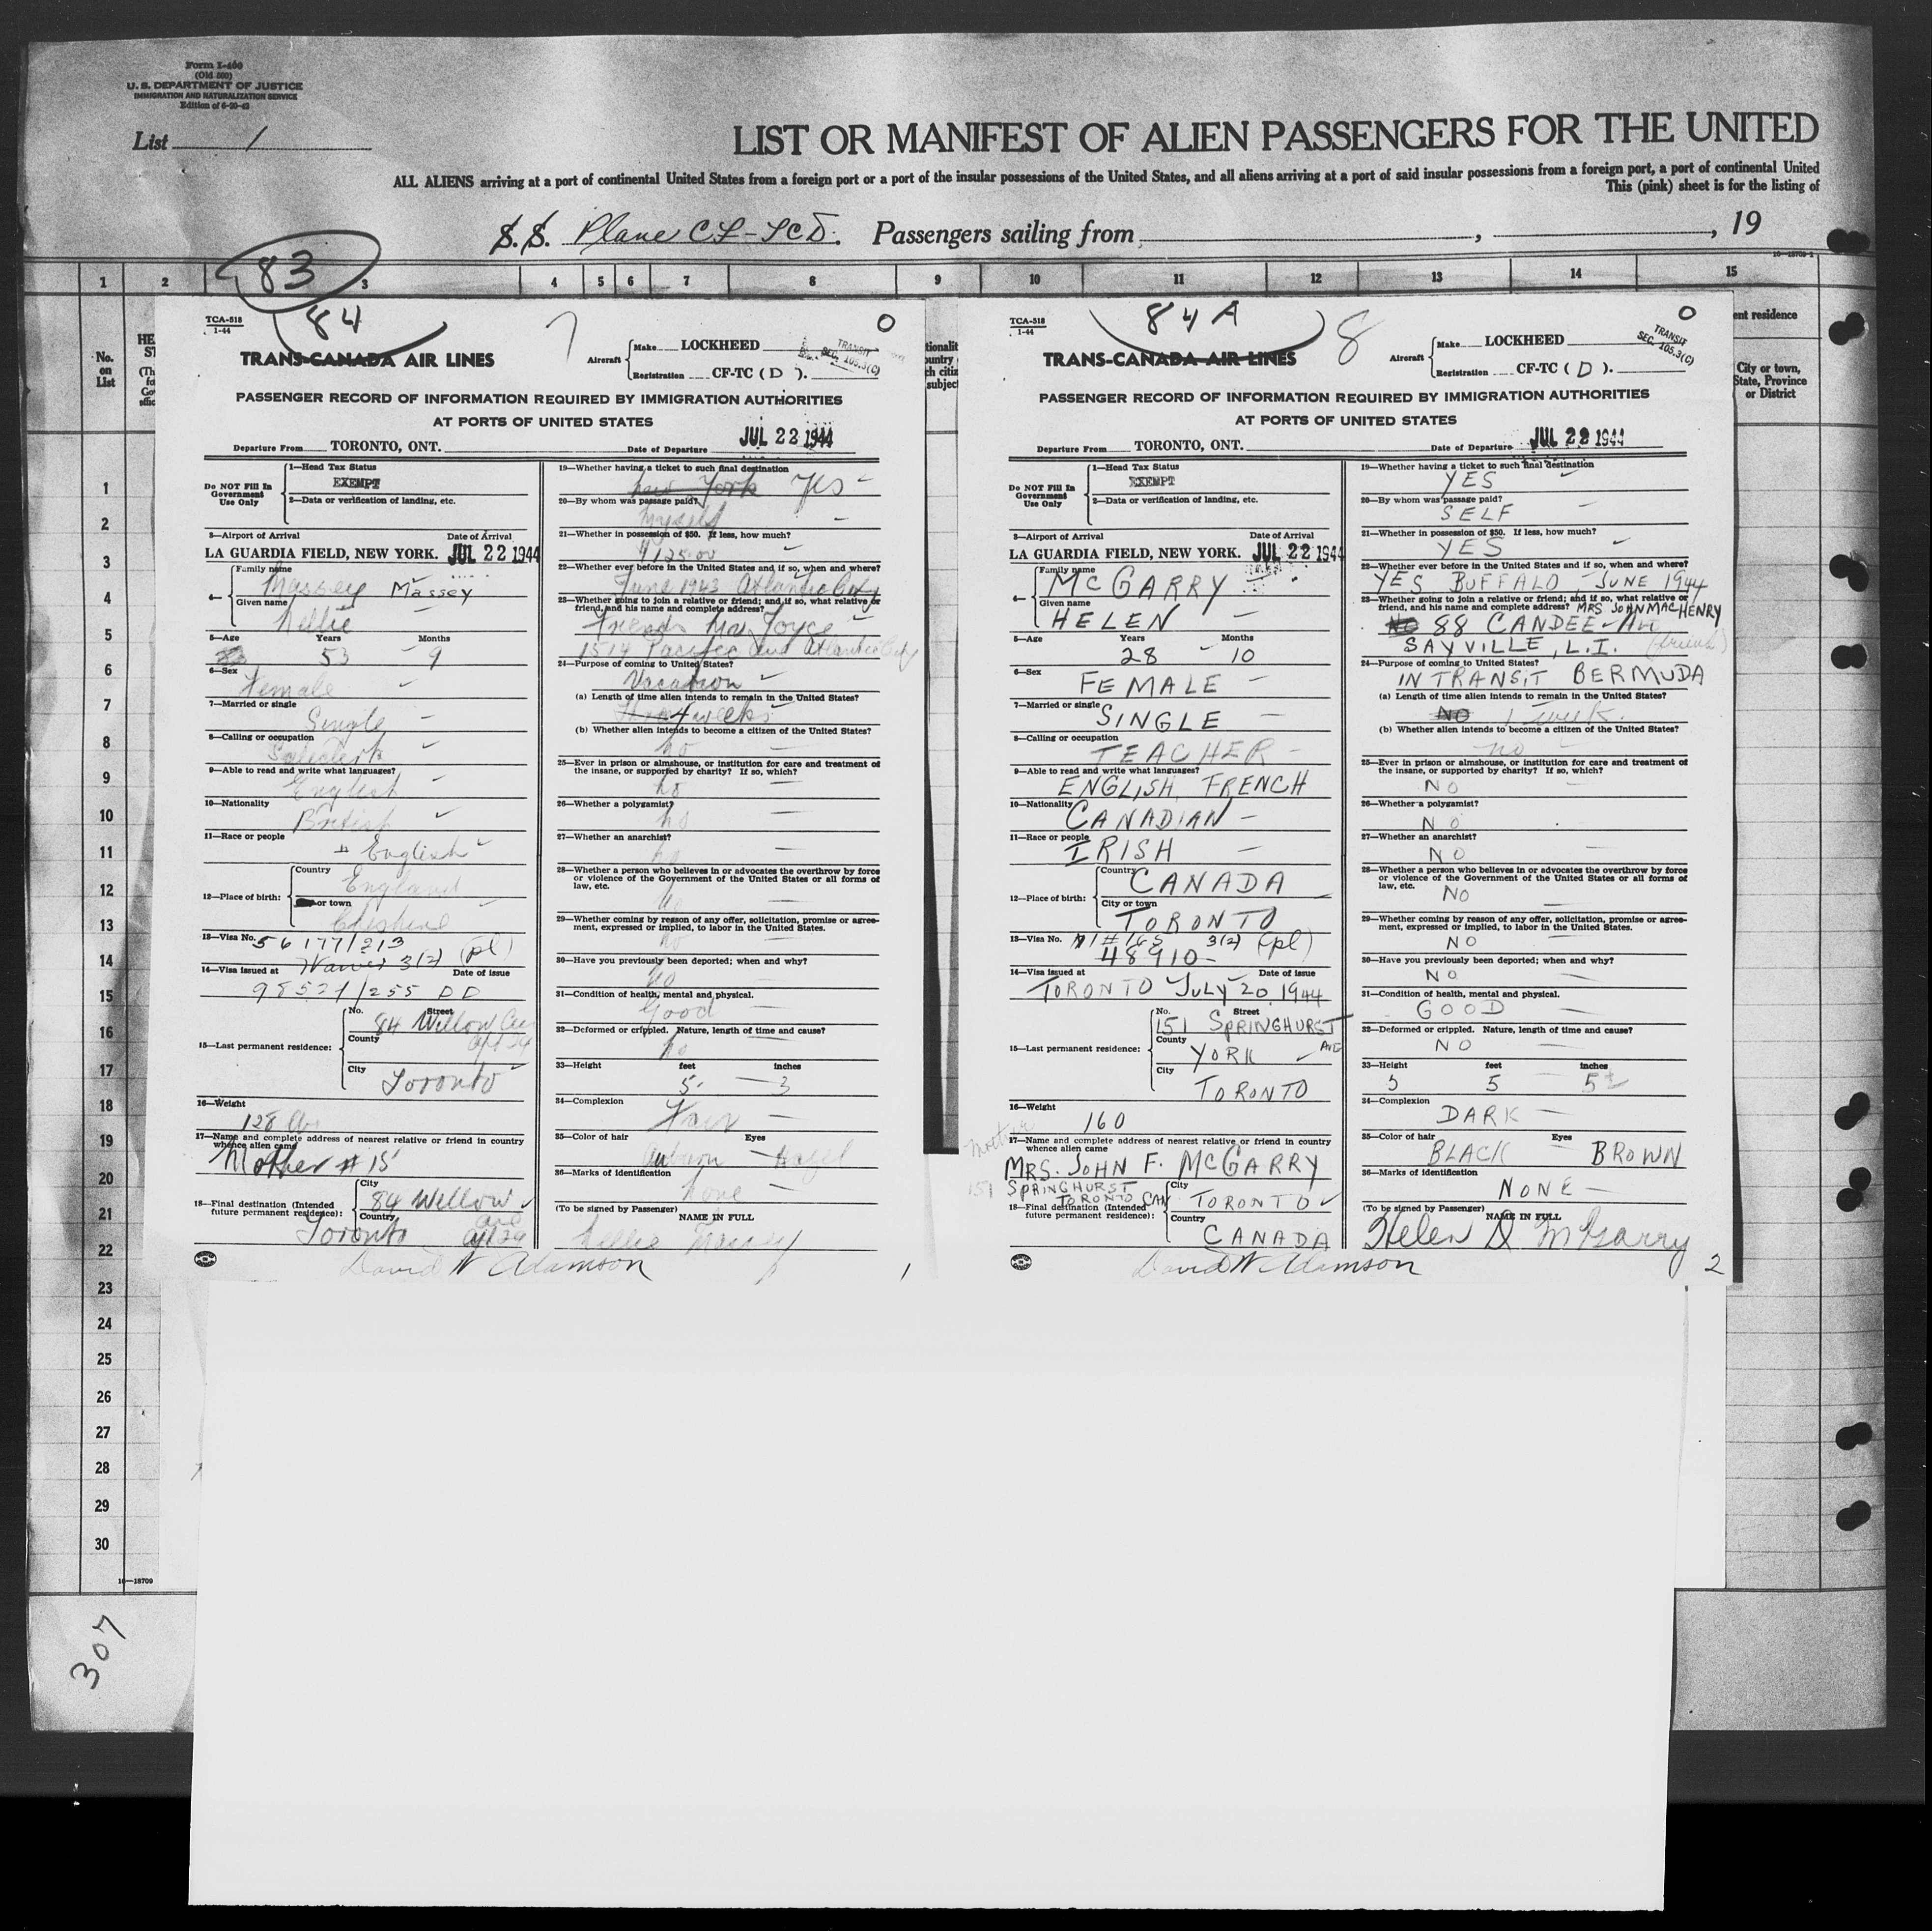 Form I-400
(Old 500)
U. S. DEPARTMENT OF JUSTICE
IMMIGRATION AND NATURALIZATION SERVICE
List 1
LIST OR MANIFEST OF ALIEN PASSENGERS FOR THE UNITED
ALL ALIENS arriving at a port of continental United States from a foreign port or a port of the insular possessions of the United States, and all aliens arriving at a port of said insular possessions from a foreign port, a port of continental United
This (pink) sheet is for the listing of
S.S. Plane Passengers sailing from , , 19
83
1 2 3 4 5 6 7 8 9 10 11 12 13 14 15
No.
on
List
ent residence
City or town,
State, Province
or District
TCA-518
1-44
84
7
O
TRANS-CANADA AIR LINES
Aircraft
Make LOCKHEED
Registration CF-TC ( D ).
TRANSIT
SEC. 105.3(C)
PASSENGER RECORD OF INFORMATION REQUIRED BY IMMIGRATION AUTHORITIES
AT PORTS OF UNITED STATES
Departure From TORONTO, ONT. Date of Departure JUL 22 1944
Do NOT Fill In
Government
Use Only
1—Head Tax Status
EXEMPT
2—Data or verification of landing, etc.
3—Airport of Arrival Date of Arrival
LA GUARDIA FIELD, NEW YORK. JUL 22 1944
4—
Family name
Massey Massey
Given name
Nellie
5—Age Years Months
53 9
6—Sex
Female
7—Married or single
Single
8—Calling or occupation
9—Able to read and write what languages?
English
10—Nationality
British
11—Race or people
English
12—Place of birth:
Country
England
or town
Cheshire
13—Visa No. 56177/213 (pl)
Waiver 3(2)
14—Visa issued at Date of issue
98521/255 DD
15—Last permanent residence:
No. Street
84 Willow
County
City
Toronto
16—Weight
128
17—Name and complete address of nearest relative or friend in country
whence alien came
Mother # 15
18—Final destination (Intended
future permanent residence):
City
84 Willow
Country
Toronto
19—Whether having a ticket to such final destination
New York Yes
20—By whom was passage paid?
Myself
21—Whether in possession of $50. If less, how much?
125.00
22—Whether ever before in the United States and if so, when and where?
June 1943 Atlantic City
23—Whether going to join a relative or friend; and if so, what relative or
friend, and his name and complete address?
Friend Joyce
1514 Pacific Atlantic City
24—Purpose of coming to United States?
Vacation
(a) Length of time alien intends to remain in the United States?
4 weeks
(b) Whether alien intends to become a citizen of the United States?
no
25—Ever in prison or almshouse, or institution for care and treatment of
the insane, or supported by charity? If so, which?
no
26—Whether a polygamist?
no
27—Whether an anarchist?
no
28—Whether a person who believes in or advocates the overthrow by force
or violence of the Government of the United States or all forms of
law, etc.
no
29—Whether coming by reason of any offer, solicitation, promise or agree-
ment, expressed or implied, to labor in the United States.
no
30—Have you previously been deported; when and why?
no
31—Condition of health, mental and physical.
Good
32—Deformed or crippled. Nature, length of time and cause?
no
33—Height feet inches
5 3
34—Complexion
Fair
35—Color of hair Eyes
Auburn Hazel
36—Marks of identification
none
(To be signed by Passenger) NAME IN FULL
Nellie Massey
David W Adamson
1
TCA-518
1-44
84 A
8
O
TRANS-CANADA AIR LINES
Aircraft
Make LOCKHEED
Registration CF-TC ( D ).
TRANSIT
SEC. 105.3(C)
PASSENGER RECORD OF INFORMATION REQUIRED BY IMMIGRATION AUTHORITIES
AT PORTS OF UNITED STATES
Departure From TORONTO, ONT. Date of Departure JUL 22 1944
Do NOT Fill In
Government
Use Only
1—Head Tax Status
EXEMPT
2—Data or verification of landing, etc.
3—Airport of Arrival Date of Arrival
LA GUARDIA FIELD, NEW YORK. JUL 22 1944
4—
Family name
McGARRY
Given name
HELEN
5—Age Years Months
28 10
6—Sex
FEMALE
7—Married or single
SINGLE
8—Calling or occupation
TEACHER
9—Able to read and write what languages?
ENGLISH, FRENCH
10—Nationality
CANADIAN
11—Race or people
IRISH
12—Place of birth:
Country
CANADA
City or town
TORONTO
13—Visa No. 3(2) (pl)
48910
14—Visa issued at Date of issue
TORONTO JULY 20, 1944
15—Last permanent residence:
No. Street
151 SPRINGHURST AVE
County
YORK
City
TORONTO
16—Weight
160
Mother
17—Name and complete address of nearest relative or friend in country
whence alien came
MRS. JOHN F. McGARRY
151 SPRINGHURST
TORONTO CAN
18—Final destination (Intended
future permanent residence):
City
TORONTO
Country
CANADA
19—Whether having a ticket to such final destination
YES
20—By whom was passage paid?
SELF
21—Whether in possession of $50. If less, how much?
YES
22—Whether ever before in the United States and if so, when and where?
YES BUFFALO, JUNE 1944
23—Whether going to join a relative or friend; and if so, what relative or
friend, and his name and complete address? MRS JOHN MACHENRY
NO 88 CANDEE AVE
SAYVILLE, L.I. (friend)
24—Purpose of coming to United States?
IN TRANSIT BERMUDA
(a) Length of time alien intends to remain in the United States?
NO 1 week.
(b) Whether alien intends to become a citizen of the United States?
no
25—Ever in prison or almshouse, or institution for care and treatment of
the insane, or supported by charity? If so, which?
NO
26—Whether a polygamist?
NO
27—Whether an anarchist?
NO
28—Whether a person who believes in or advocates the overthrow by force
or violence of the Government of the United States or all forms of
law, etc.
NO
29—Whether coming by reason of any offer, solicitation, promise or agree-
ment, expressed or implied, to labor in the United States.
NO
30—Have you previously been deported; when and why?
NO
31—Condition of health, mental and physical.
GOOD
32—Deformed or crippled. Nature, length of time and cause?
NO
33—Height feet inches
5 5 5
34—Complexion
DARK
35—Color of hair Eyes
BLACK BROWN
36—Marks of identification
NONE
(To be signed by Passenger) NAME IN FULL
Helen McGarry
David W Adamson
2
1
2
3
4
5
6
7
8
9
10
11
12
13
14
15
16
17
18
19
20
21
22
23
24
25
26
27
28
29
30
16—18709
307